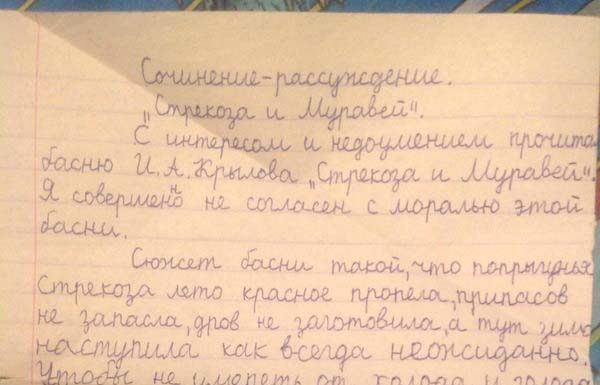 Сочинение-рассуждение.
"Стрекоза и Муравей".
С интересом и недоумением прочита
басню И.А.Крылова "Стрекоза и Муравей".
Я совершенно не согласен с моралью этой
басни.
Сюжет басни такой, что попрыгунья
Стрекоза лето красное пропела, припасов
не запасла, дров не заготовила, а тут зима
наступила как всегда неожиданно.
Чтобы не умереть от холода и голода